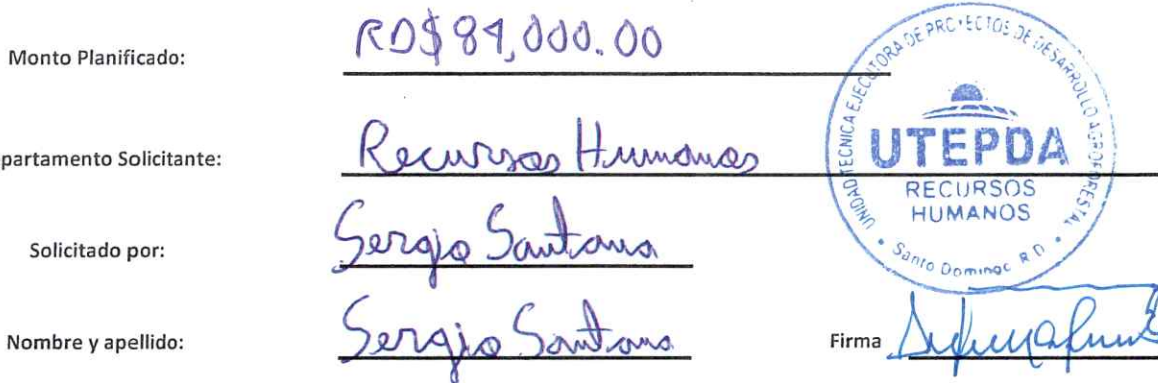 Monto Planificado: RD$84,000.00
partamento Solicitante: Recursos Humanos
Solicitado por: Sergio Santana
Nombre y apellido: Sergio Santana
Firma
UNIDAD TECNICA EJECUTORA DE PROYECTOS DE DESARROLLO AGROFORESTAL
UTEPDA
RECURSOS
HUMANOS
Santo Domingo R.D.